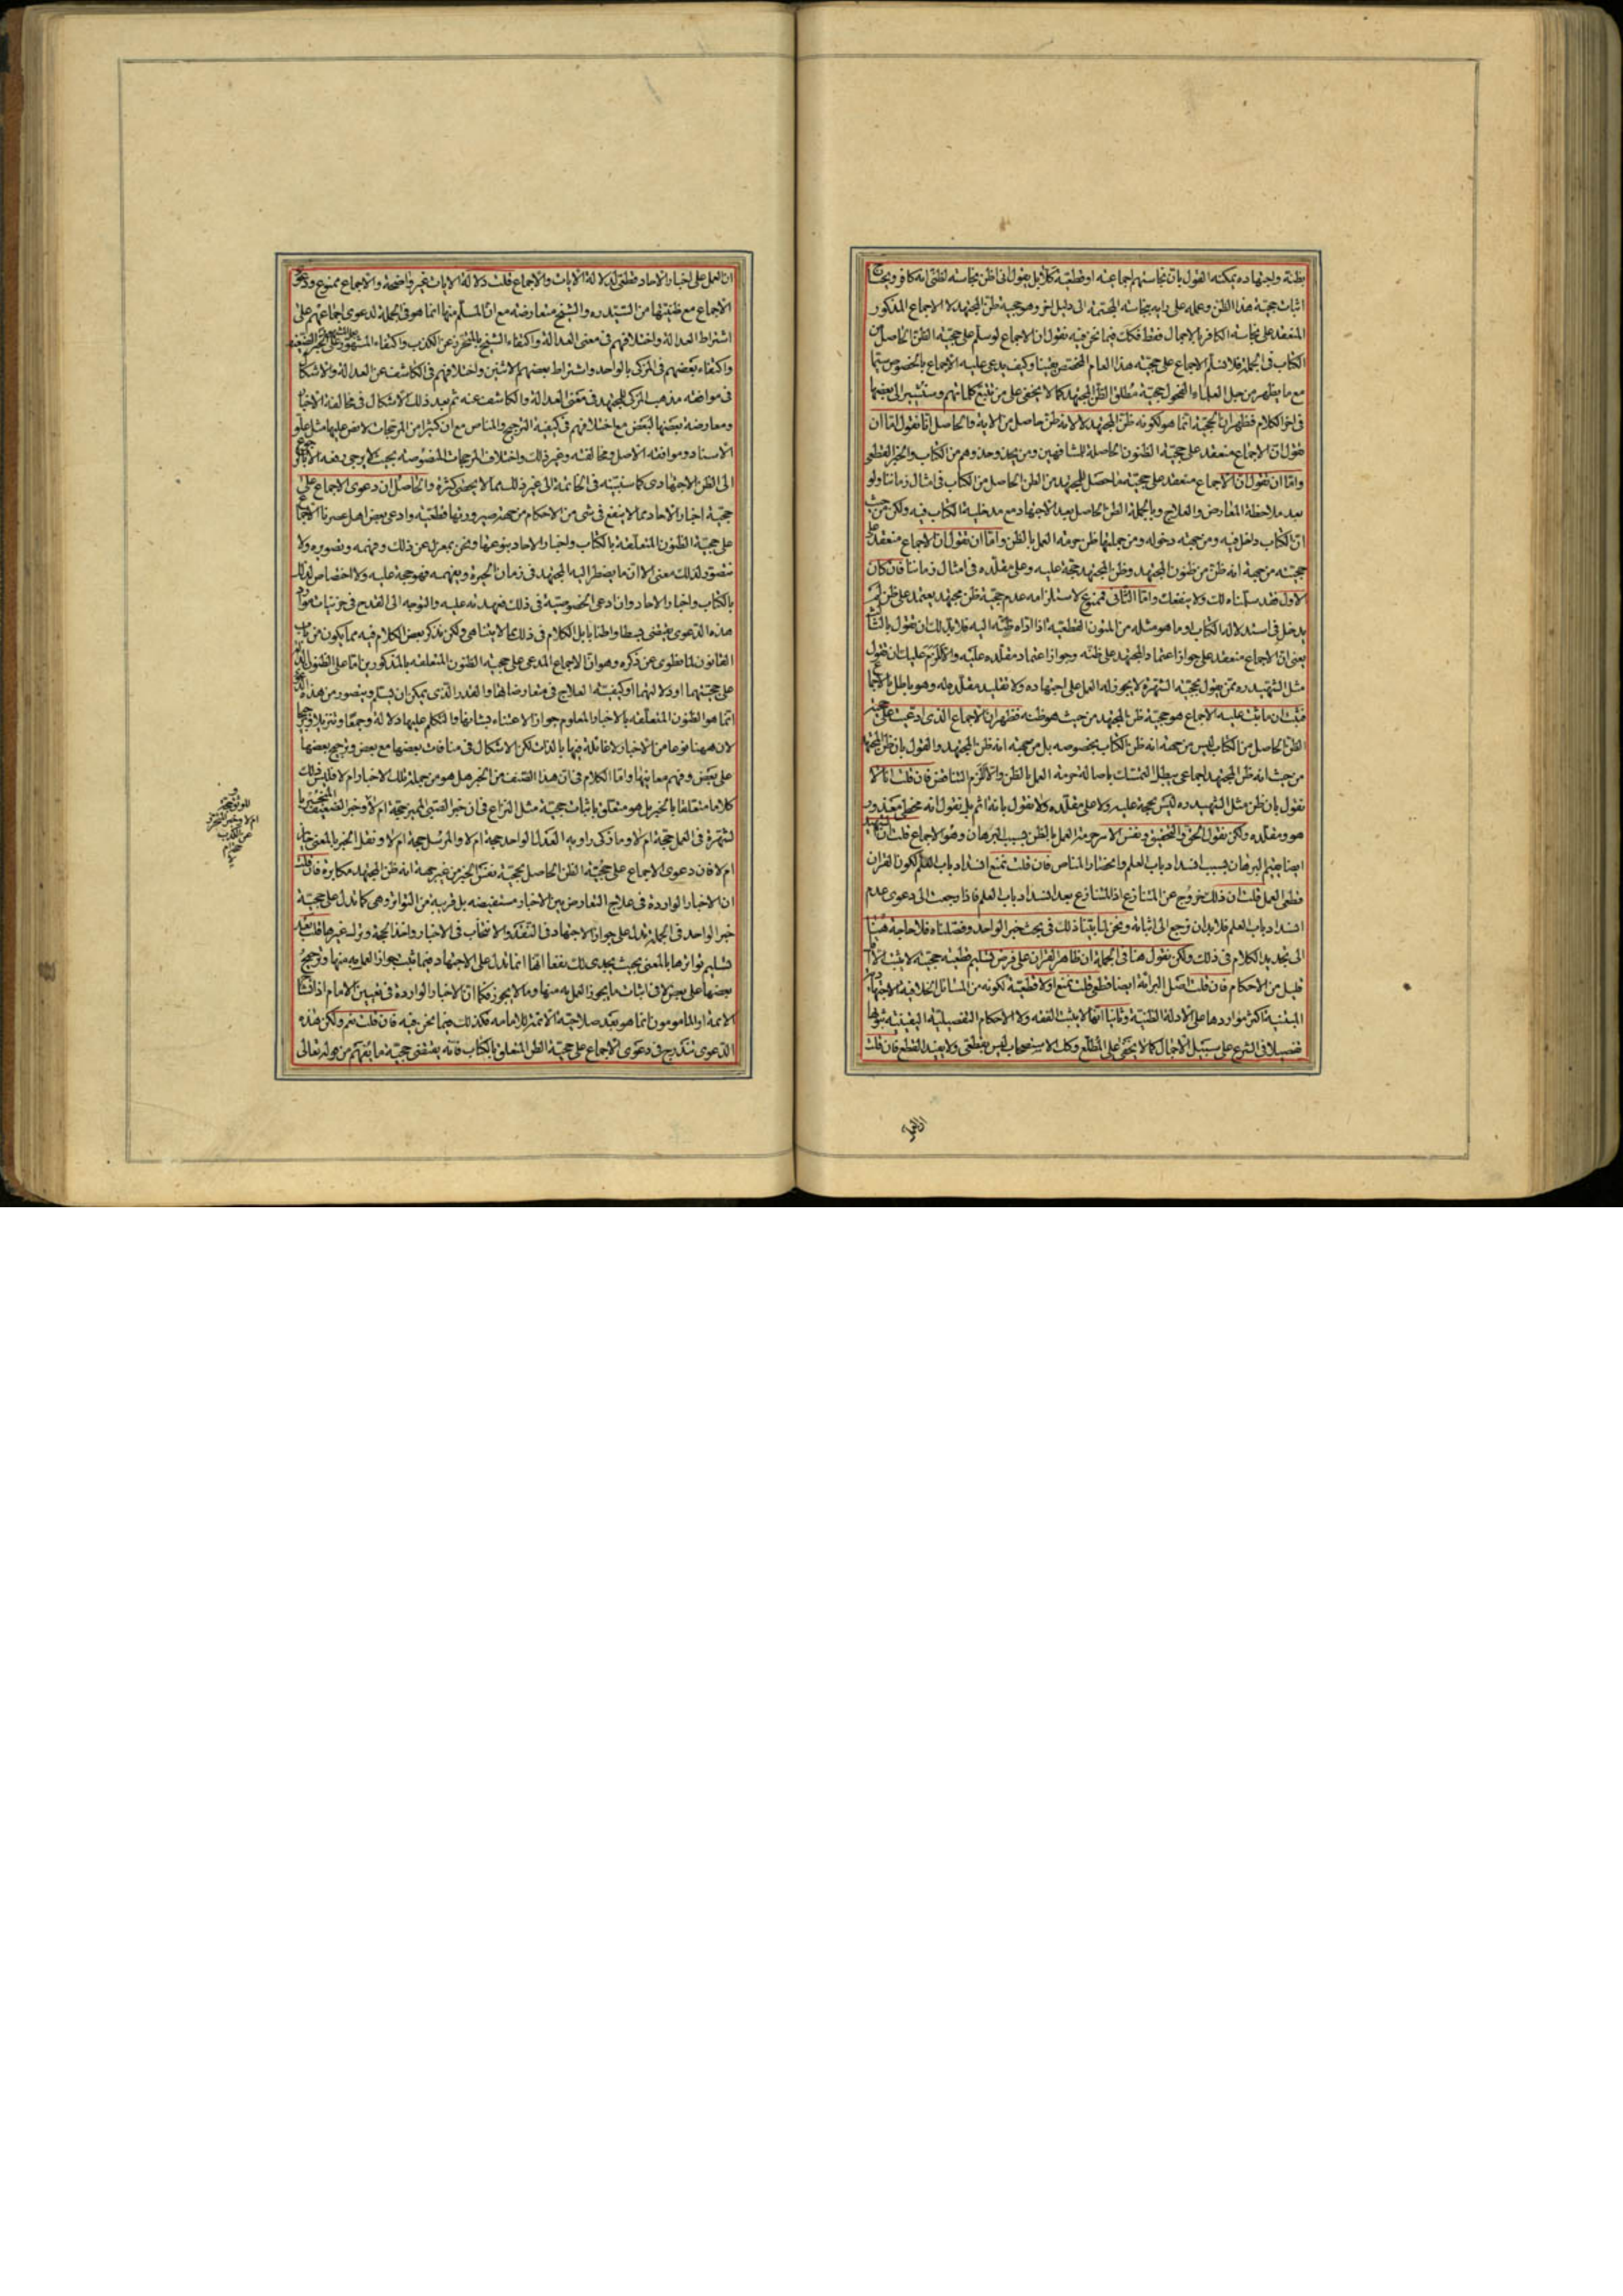 بظنه واجتهاده يمكنه القول بان نجاستهم اجماعية او قطعية كلا بل يقول انی اظن نجاسته لظنی انه كافر ويحتاج
اثبات حجية هذا الظن وعمله علی رايه بنجاسة المجتهد الی دليل اخر وهو حجية ظن المجتهد لا الاجماع المذكور
المنعقد علی نجاسة الكافر بالاجمال فقط فكك فيما نحن فيه نقول ان الاجماع لو سلم علی حجية الظن الحاصل من
الكتاب فی الجملة فلا نسلم الاجماع علی حجية هذا العام المختص يقينا وكيف يدعی عليه الاجماع بالخصوص سيما
مع ما يظهر من جل العلماء الفحول حجية مطلق الظن للمجتهد كما لا يخفی علی من تتبع كلماتهم وسنشير الی بعضها
فی اخر الكلام فظهر ان الحجية انما هو لكونه ظن المجتهد لا لانه ظن حاصل من الاية والحاصل انا نقول اما ان
تقول ان الاجماع منعقد علی حجية الظنون الحاصلة للمشافهين ومن يحذو حذوهم من الكتاب والخبر القطعی
واما ان تقول ان الاجماع منعقد علی حجية ما حصل للمجتهد من الظن الحاصل من الكتاب فی امثال زماننا ولو
بعد ملاحظة المعارض والعلاج وبالجملة الظن الحاصل بعد الاجتهاد مع مدخلية الكتاب فيه ولكن من حيث
ان الكتاب داخل فيه ومن جهة دخوله ومن جملتها ظن حرمة العمل بالظن واما ان تقول ان الاجماع منعقد علی
حجيته من جهة انه ظن من ظنون المجتهد وظن المجتهد حجة عليه وعلی مقلده فی امثال زماننا فان كان
الاول فقد سلمناه لك ولا ينفعك واما الثانی فممنوع لاستلزامه عدم حجية ظن مجتهد يعتمد علی ظن لم
يدخل فی استدلاله الكتاب او ما هو مثله من المتون القطعية اذا اداه ظنه اليه فلا بد لك ان تقول بالثالث
يعنی ان الاجماع منعقد علی جواز اعتماد المجتهد علی ظنه وجواز اعتماد مقلده عليه والا لزم عليك ان تقول
مثل الشهيد ره ممن يقول بحجية الشهرة لا يجوز له العمل علی اجتهاده ولا تقليد مقلده له وهو باطل بالاجماع
فثبت ان ما يثبت عليه الاجماع هو حجية ظن المجتهد من حيث هو ظنه فظهر ان الاجماع الذی ادعيت علی حجية
الظن الحاصل من الكتاب ليس من جهة انه ظن الكتاب بخصوصه بل من جهة انه ظن المجتهد والقول بان ظن المجتهد
من حيث انه ظن المجتهد اجماعی يبطل التمسك باصالة حرمة العمل بالظن والا لزم التناقض فان قلت انا لا
نقول بان ظن مثل الشهيد ره ليس بحجة عليه ولا علی مقلده ولا نقول بانه اثم بل نقول انه مخطئ معذور
هو ومقلده ولكن نقول الحق والتحقيق ونفس الامر حرمة العمل بالظن بسبب البرهان وهو الاجماع قلت ان الشهيد
ايضا يقيم البرهان بسبب انسداد باب العلم وانحصار المناص فان قلت نمنع انسداد باب العلم لكون القران
قطعی العمل قلت ان ذلك خروج عن المتنازع اذ المتنازع بعد انسداد باب العلم فاذا رجعت الی دعوی عدم
انسداد باب العلم فلا بد ان نرجع الی اثباته ونحن قد اثبتنا ذلك فی بحث خبر الواحد وفصلناه فلا حاجة هنا
الی تجديد الكلام فی ذلك ولكن نقول هنا فی الجملة ان ظاهر القران علی فرض تسليم قطعية حجيته لا يثبت الا
قليل من الاحكام فان قلت اصل البرائة ايضا قطعی قلت نمنع اولا قطعيته لكونه من المسائل الخلافية الاجتهادية
المبتنية اكثر مواردها علی الادلة الظنية وثانيا انها لا يثبت الفقه ولا الاحكام التفصيلية اليقينية ثبوتها
تفصيلا فی الشرع علی سبيل الاجمال كما لا يخفی علی المطلع وكك الاستصحاب ليس بقطعی ولا يفيد القطع فان قلت
ان العمل
ان العمل علی اخبار الاحاد قطعی لدلالة الايات والاجماع قلت دلالة الايات غير واضحة والاجماع ممنوع ودعوی
الاجماع مع ظنيتها من السيد ره والشيخ متعارضة مع ان المسلم منها انما هو فی الجملة لدعوی اجماعهم علی
اشتراط العدالة واختلافهم فی معنی العدالة واكتفاء الشيخ بالمتحرز عن الكذب واكتفاء المشهور علی الخبر الضعيف
واكتفاء بعضهم فی المزكی بالواحد واشتراط بعضهم الاثنين واختلافهم فی الكاشف عن العدالة والاشكال
فی موافقة مذهب المزكی للمجتهد فی معنی العدالة والكاشف عنه ثم بعد ذلك الاشكال فی مخالفة الاخبار
ومعارضة بعضها لبعض مع اختلافهم فی كيفية الترجيح والمناص مع ان كثيرا من المرجحات لا نص عليها مثل علو
الاسناد وموافقة الاصل ومخالفته وغير ذلك واختلاف المرجحات المنصوصة بحيث لا يرجی رفعه الا بالرجوع
الی الظن الاجتهادی كما سنبينه فی الخاتمة الی غير ذلك مما لا يحصی كثرة والحاصل ان دعوی الاجماع علی
حجية اخبار الاحاد مما لا ينفع فی شئ من الاحكام من جهة صيرورتها قطعية وادعی بعض اهل عصرنا الاجماع
علی حجية الظنون المتعلقة بالكتاب واخبار الاحاد بنوعها ونحن بمعزل عن ذلك وفهمه وتصويره ولا
نتصور لذلك معنی الا ان ما يضطر اليه المجتهد فی زمان الحيرة ويفهمه فهو حجة عليه ولا اختصاص لذلك
بالكتاب واخبار الاحاد وان ادعی الخصوصية فی ذلك فعهدته عليه والتوجه الی القدح فی جزئيات موارد
هذه الدعوی يقتضی بسطا واطنابا بل الكلام فی ذلك مما لا يتناهی ولكن نذكر بعض الكلام فيه مما يكون من باب
القانون لما طوی عن ذكره وهو ان الاجماع المدعی علی حجية الظنون المتعلقة بالمذكورين اما علی الظنون الدالة
علی حجيتهما او دلالتهما او كيفية العلاج فی تعارضاتها والقدر الذی يمكن ان يسلم ويتصور من هذه الدعوی
انما هو الظنون المتعلقة بالاخبار المعلوم جواز الاعتناء بشانها والتكلم عليها دلالة وجمعا وتنزيلا وترجيحا
لان ههنا نوعا من الاخبار لا غائلة فيها بالذات لكن الاشكال فی منافات بعضها مع بعض وترجيح بعضها
علی بعض وفهم معانيها واما الكلام فی ان هذا الصنف من الخبر هل هو من جملة تلك الاخبار ام لا فليس ذلك
كلاما متعلقا بالخبر بل هو متعلق باثبات حجيته مثل النزاع فی ان خبر الصبی المميز حجة ام لا وخبر الضعيف المنجبر با
لشهرة فی العمل حجة ام لا وما زكی راويه العدل الواحد حجة ام لا والمرسل حجة ام لا ونقل الخبر بالمعنی جايز
ام لا فان دعوی الاجماع علی حجية الظن الحاصل بحجية نفس الخبر من غير جهة انه ظن المجتهد مكابرة فان قلت
ان الاخبار الواردة فی علاج التعارض بين الاخبار مستفيضة بل قريبة من التواتر وهی كما تدل علی حجية
خبر الواحد فی الجملة تدل علی جواز الاجتهاد فی التنقد والانتخاب فی الاخبار واخذ الحجة وترك غيرها قلت بعد
تسليم تواترها بالمعنی بحيث يجدی لك نفعا انها انما تدل علی الاجتهاد فيما ثبت جواز العمل به منها وترجيح
بعضها علی بعض لا فی اثبات ما يجوز العمل به منها وما لا يجوز فكما ان الاخبار الواردة فی تعيين الامام اذا تشاح
الائمة او المامومون انما هو بعد صلاحية الائمة للامامة فكذلك فيما نحن فيه فان قلت نعم ولكن هذه
الدعوی تندرج فی دعوی الاجماع علی حجية الظن المتعلق بالكتاب فانه يقتضی حجية ما يفهم من قوله تعالی
ام لا وخبر المتحرز
عن الكذب
حجة ام